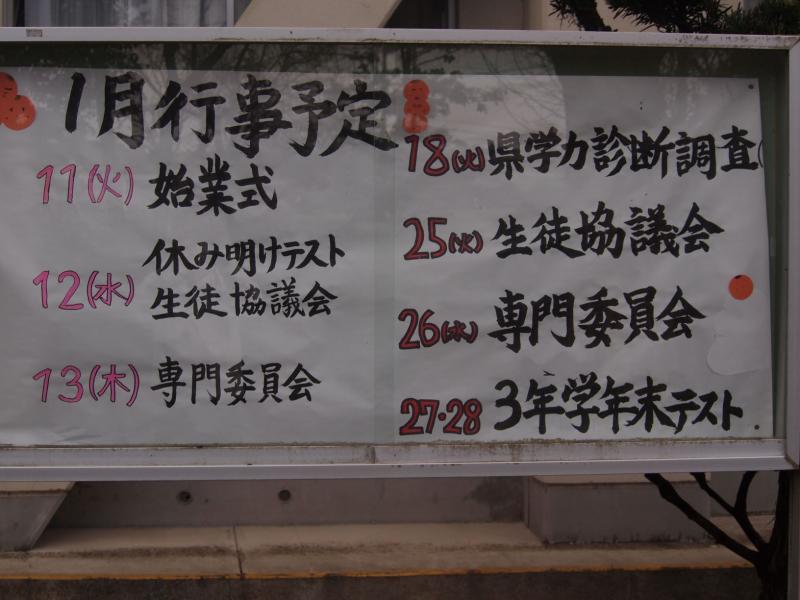 1月行事予定
11(火) 始業式
12(水) 休み明けテスト
生徒協議会
13(木) 専門委員会
18(火) 県学力診断調査(
25(火) 生徒協議会
26(水) 専門委員会
27・28 3年学年末テスト